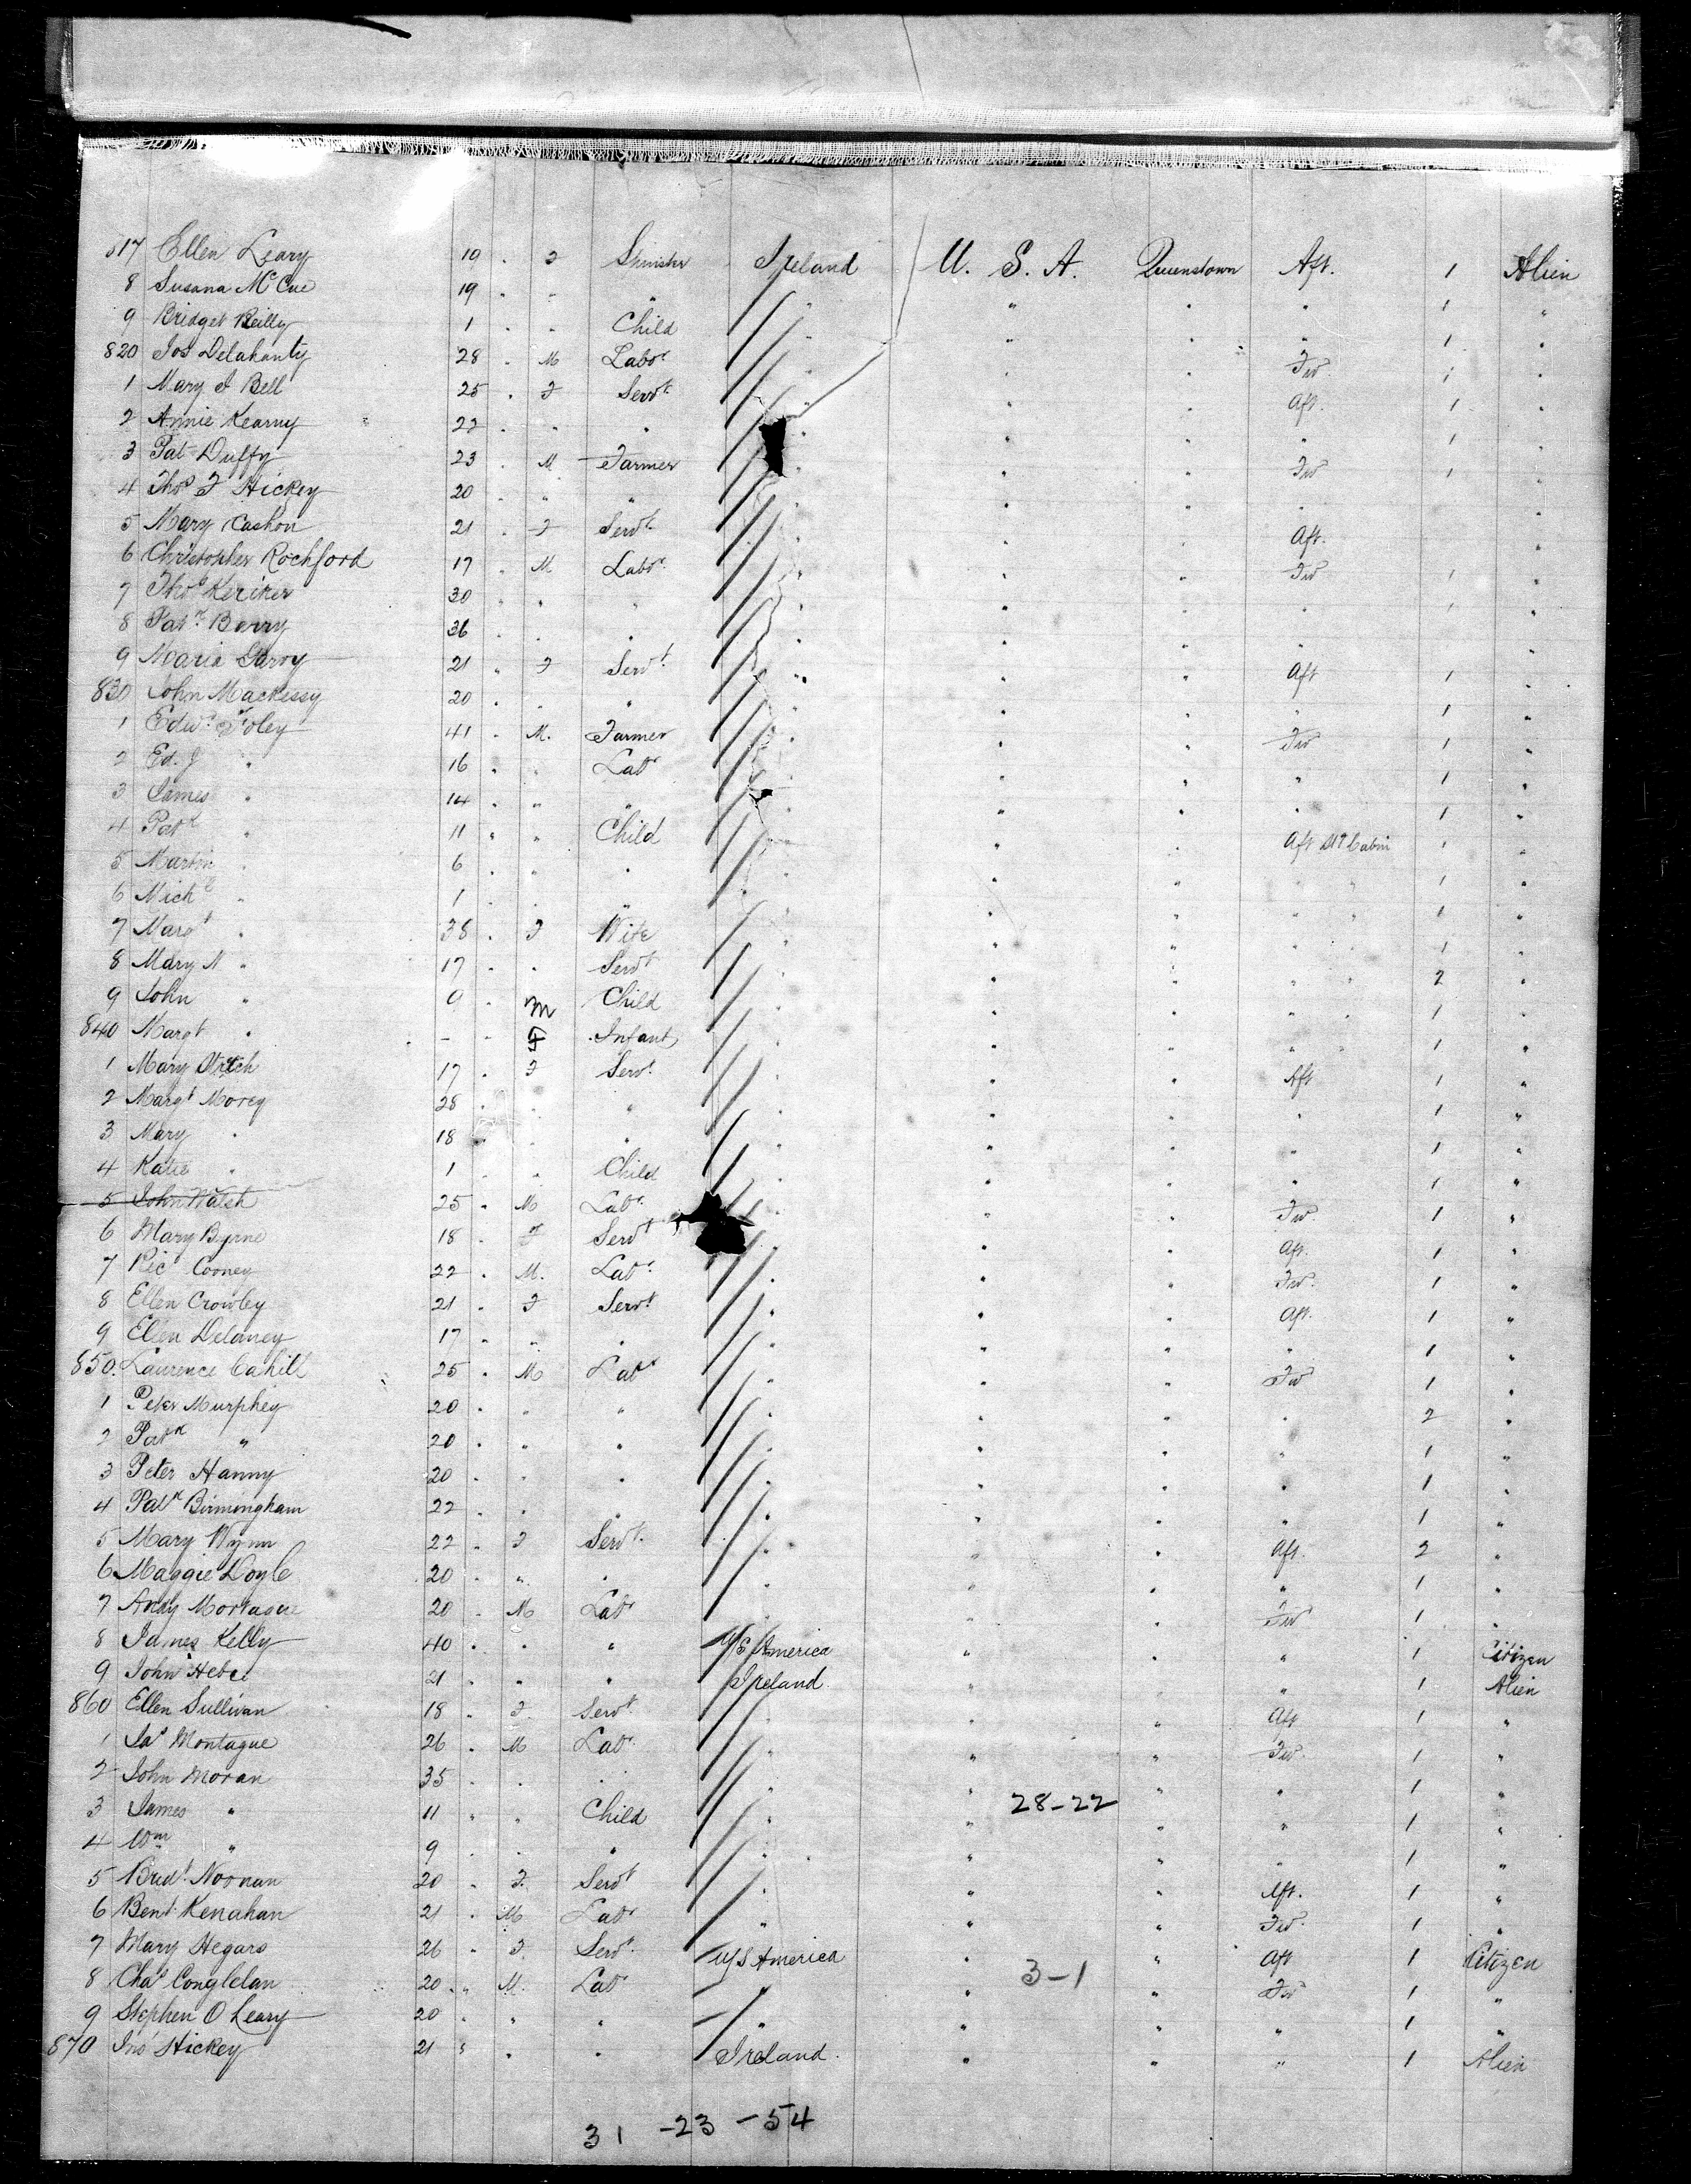 817 Ellen Leary 19 " F Spinster Ireland U. S. A. Queenstown Aft. 1 Alien
8 Susana McCue 19 " " " " " " " 1 "
9 Bridget Reilly 1 " " Child " " " " 1 "
820 Jos Delahanty 28 " M Labr " " " Fw 1 "
1 Mary J Bell 25 " F Servt " " " Aft. 1 "
2 Annie Kearny 22 " " " " " " " 1 "
3 Pat Duffy 23 " M Farmer " " " Fw 1 "
4 Thos F Hickey 20 " " " " " " " "
5 Mary Cashon 21 " F Servt " " " Aft. "
6 Christopher Rochford 17 " M Labr " " " Fw 1 "
7 Thos Keriker 30 " " " " " " " 1 "
8 Patk Barry 36 " " " " " " " "
9 Maria Garvy 21 " F Servt " " " Aft 1 "
830 John Mackessy 20 " " " " " " 1 "
1 Edwd Foley 41 " M. Farmer " " " Fw 1 "
2 Ed. J " 16 " " Labr " " " " 1 "
3 James " 14 " " " " " " " 1 "
4 Patk " 11 " " Child " " " Aft Cabin 1 "
5 Martin " 6 " " " " " " " " 1 "
6 Michl " 1 " " " " " " " " 1 "
7 Margt " 38 " F Wife " " " " 1 "
8 Mary " 17 " " Servt " " " " " 2 "
9 John " 9 " M Child " " " " " 1 "
840 Margt " - " F Infant " " " " " 1 "
1 Mary 17 " F Servt " " " Aft 1 "
2 Margt Morey 28 " " " " " " " 1 "
3 Mary " 18 " " " " " " " 1 "
4 Katie " 1 " " Child " " " " 1 "
5 John Walsh 25 " M Labr " " " Fw. 1 "
6 Mary Byrne 18 " F Servt " " " Aft. 1 "
7 Ricd Cooney 22 " M. Labr " " " Fw. 1 "
8 Ellen Crowley 21 " F Servt " " " Aft. 1 "
9 Ellen Delaney 17 " " " " " " " 1 "
850. Laurence Cahill 25 " M Labr " " " Fw 1 "
1 Peter Murphey 20 " " " " " " " 2 "
2 Patk " 20 " " " " " " " 1 "
3 Peter Hanny 20 " " " " " " " 1 "
4 Patk Birmingham 22 " " " " " " " 1 "
5 Mary Wynn 22 " F Servt " " " Aft. 2 "
6 Maggie Doyle 20 " " " " " " " 1 "
7 Andy 20 " M Labr " " " Fw 1 "
8 James Kelly 40 " " " U S America " " " 1 Citizen
9 John 21 " " " Ireland " " " 1 Alien
860 Ellen Sullivan 18 " F. Servt " " " Aft 1 "
1 Jas Montague 26 " M Labr " " " Fw. 1 "
2 John Moran 35 " " " " " " " 1 "
28-22
3 James " 11 " " Child " " " " 1 "
4 Wm " 9 " " " " " " " 1 "
5 Bridt Noonan 20 " F. Servt " " " Aft. 1 "
6 Kenahan 21 " M Labr " " " Fw. 1 "
7 Mary Hegars 26 " F. Servt U S America " " Aft 1 Citizen
3-1
8 Chas 20 " M. Labr " " " Fw 1 "
9 Stephen O Leary 20 " " " " " " " 1 "
870 Jno Hickey 21 " " " Ireland " " " 1 Alien
31 -23 -54